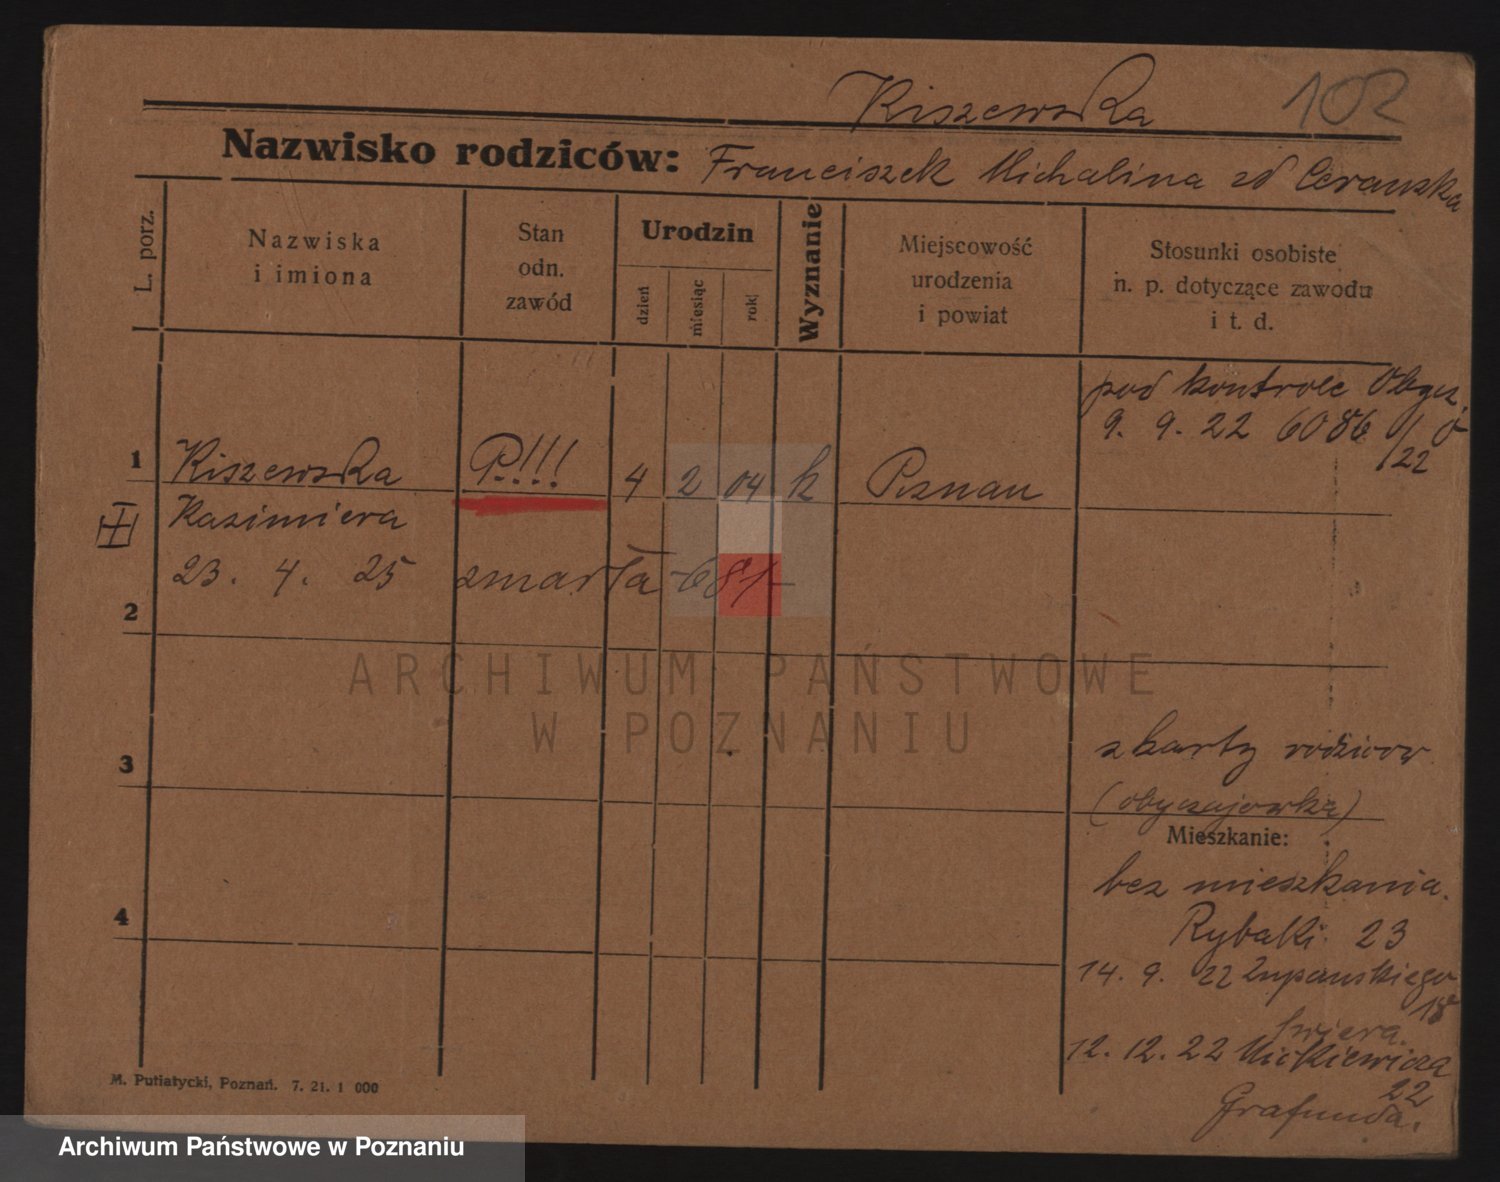 Kiszewska 102
Nazwisko rodziców: Franciszek Michalina zd Cerauska
L. porz.
Nazwiska
i imiona
Stan
odn.
zawód
Urodzin
dzień
miesiąc
rok
Wyznanie
Miejscowość
urodzenia
i powiat
Stosunki osobiste
n. p. dotyczące zawodu
i t. d.
pod kontrole Obycz.
9. 9. 22 6086
/22
1 Kiszewska P.!!! 4 2 04 k Poznan
Kazimiera
23. 4. 25 zmarła
2
ARCHIWUM PAŃSTWOWE
W POZNANIU
3
z karty rodzicow
(obyczajowka)
Mieszkanie:
bez mieszkania.
4
Rybaki 23
14. 9. 22 Zupanskiego
18
12. 12. 22 Mickiewicza
22
Grafunda.
M. Putiatycki, Poznań. 7. 21. 1 000
Archiwum Państwowe w Poznaniu